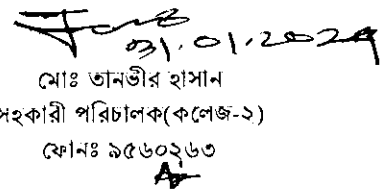 31.01.2024
মোঃ তানভীর হাসান
সহকারী পরিচালক(কলেজ-২)
ফোনঃ ৯৫৬০২৬৩